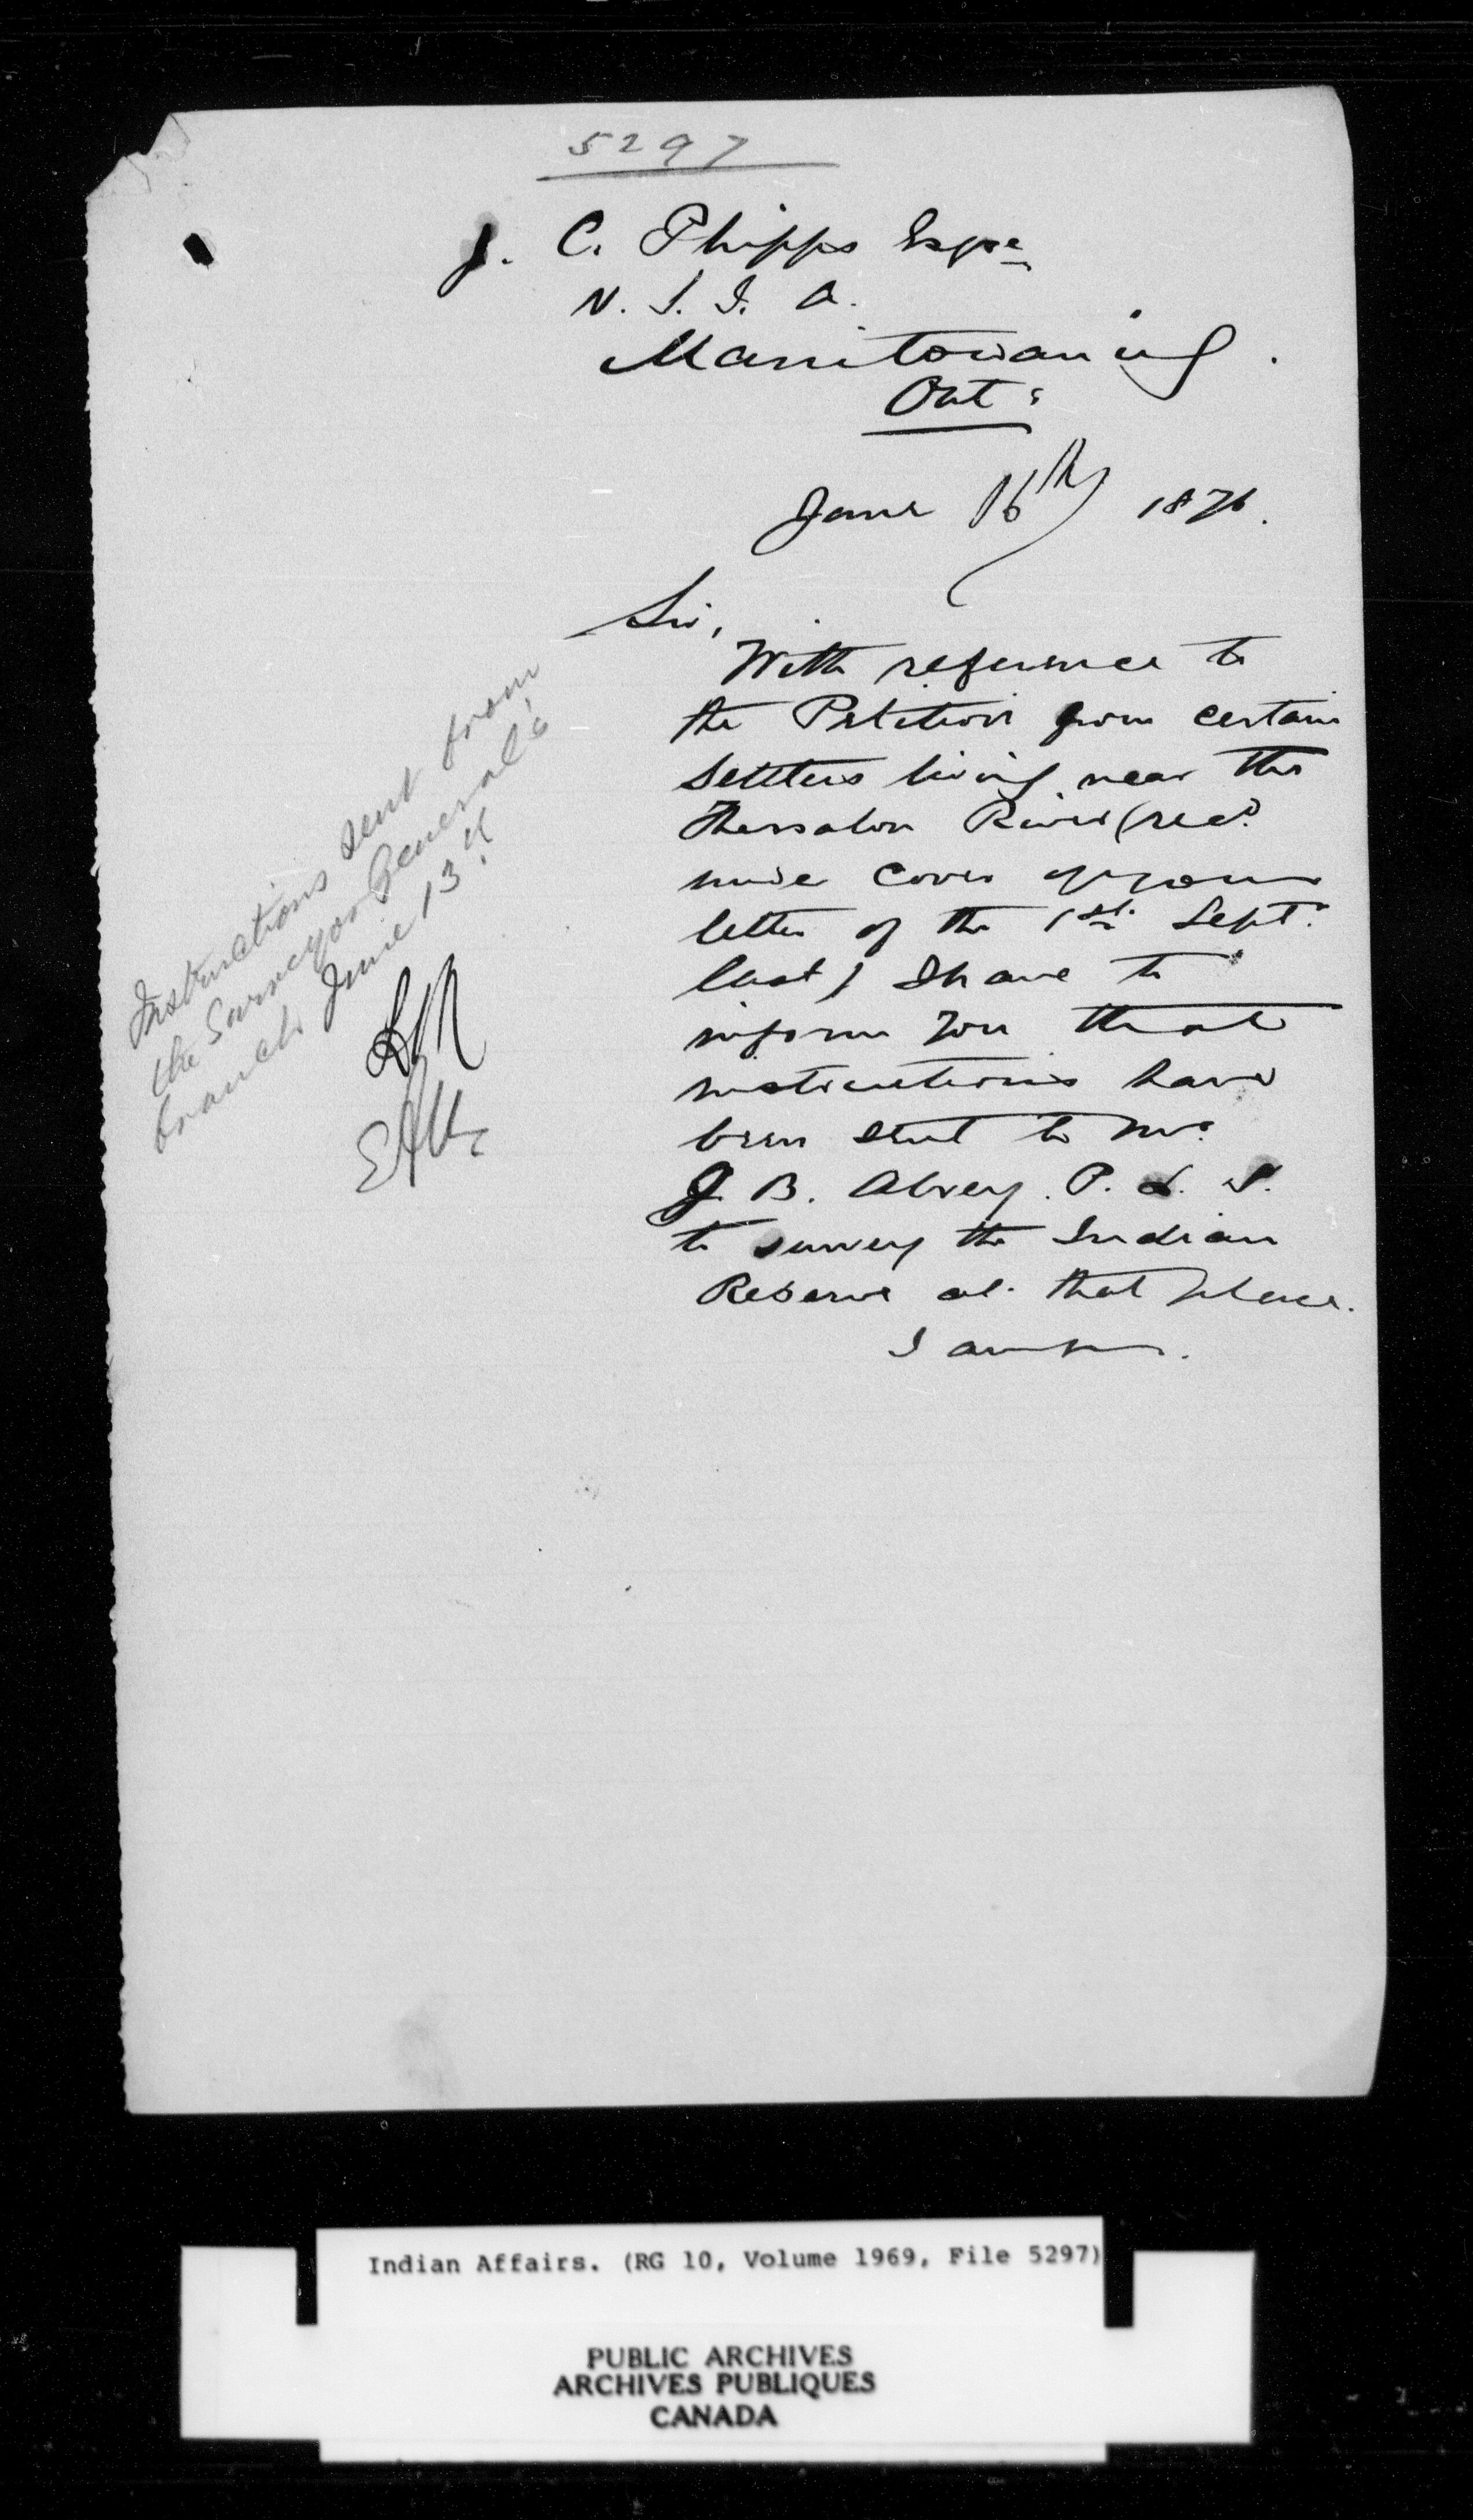 5297
J. C. Phipps Esqre
V. S. I. A.
Manitowaning.
Ont:
June 16th 1876.
Sir,
With reference to
the Petition from certain
Settlers living near the
Thessalon River (recd
under cover of your
letter of the 1st Sept.
last) I have to
inform you that
instructions have
been sent to Mr.
J. B. Abrey. P. L. S.
to survey the Indian
Reserve at that place.
I am
Instructions sent from
the Surveyor General's
branch June 13th
Indian Affairs. (RG 10, Volume 1969, File 5297)
PUBLIC ARCHIVES
ARCHIVES PUBLIQUES
CANADA